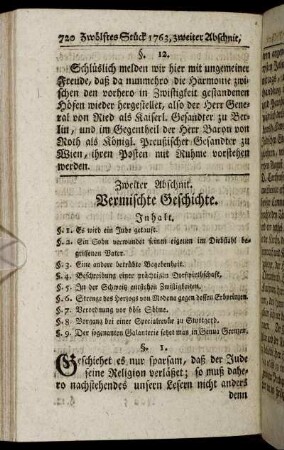 720 Zwölftes Stück 1763, zweiter Abschnit,
§. 12.
Schlüslich melden wir hier mit ungemeiner
Freude, daß da nunmehro die Harmonie zwi-
schen den vorhero in Zwistigkeit gestandenen
Höfen wieder hergestellet, also der Herr Gene-
ral von Ried als Kaiserl. Gesandter zu Ber-
lin, und im Gegentheil der Herr Baron von
Roth als Königl. Preußischer Gesandter zu
Wien, ihren Posten mit Ruhme vorstehen
werden.
Zweiter Abschnit.
Vermischte Geschichte.
Inhalt.
§. 1. Es wird ein Jude getauft.
§. 2. Ein Sohn verwundet seinen eigenen im Diebstahl be-
griffenen Vater.
§. 3. Eine andere betrübte Begebenheit.
§. 4. Beschreibung einer prächtigen
§. 5. In der Schweiz entstehen Zwistigkeiten.
§. 6. Strenge des Herzogs von Modena gegen dessen Erbprinzen.
§. 7. Verordnung vor böse Söhne.
§. 8. Vorgang bei einer Specialrevüe zu Stuttgard.
§. 9. Der sogenanten Galanterie sehet man in Genua Grenzen.
§. 1.
Geschiehet es nur sparsam, daß der Jude
seine Religion verläßet; so muß dahe-
ro nachstehendes unsern Lesern nicht anders
denn